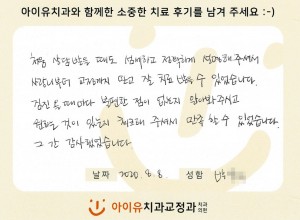 아이유치과와 함께한 소중한 치료 후기를 남겨 주세요 :-)
처음 상담 받을 때도 섬세하고 정확하게 설명해 주셔서
사랑니부터 교정까지 믿고 잘 치료 받을 수 있었습니다.
검진 올 때마다 불편한 점이 없는지 물어봐 주시고
원하는 것이 있는지 체크해 주셔서 만족 할 수 있었습니다.
그 간 감사했습니다.
날짜 2020. 8. 8. 성함
아이유치과교정과 치과의원